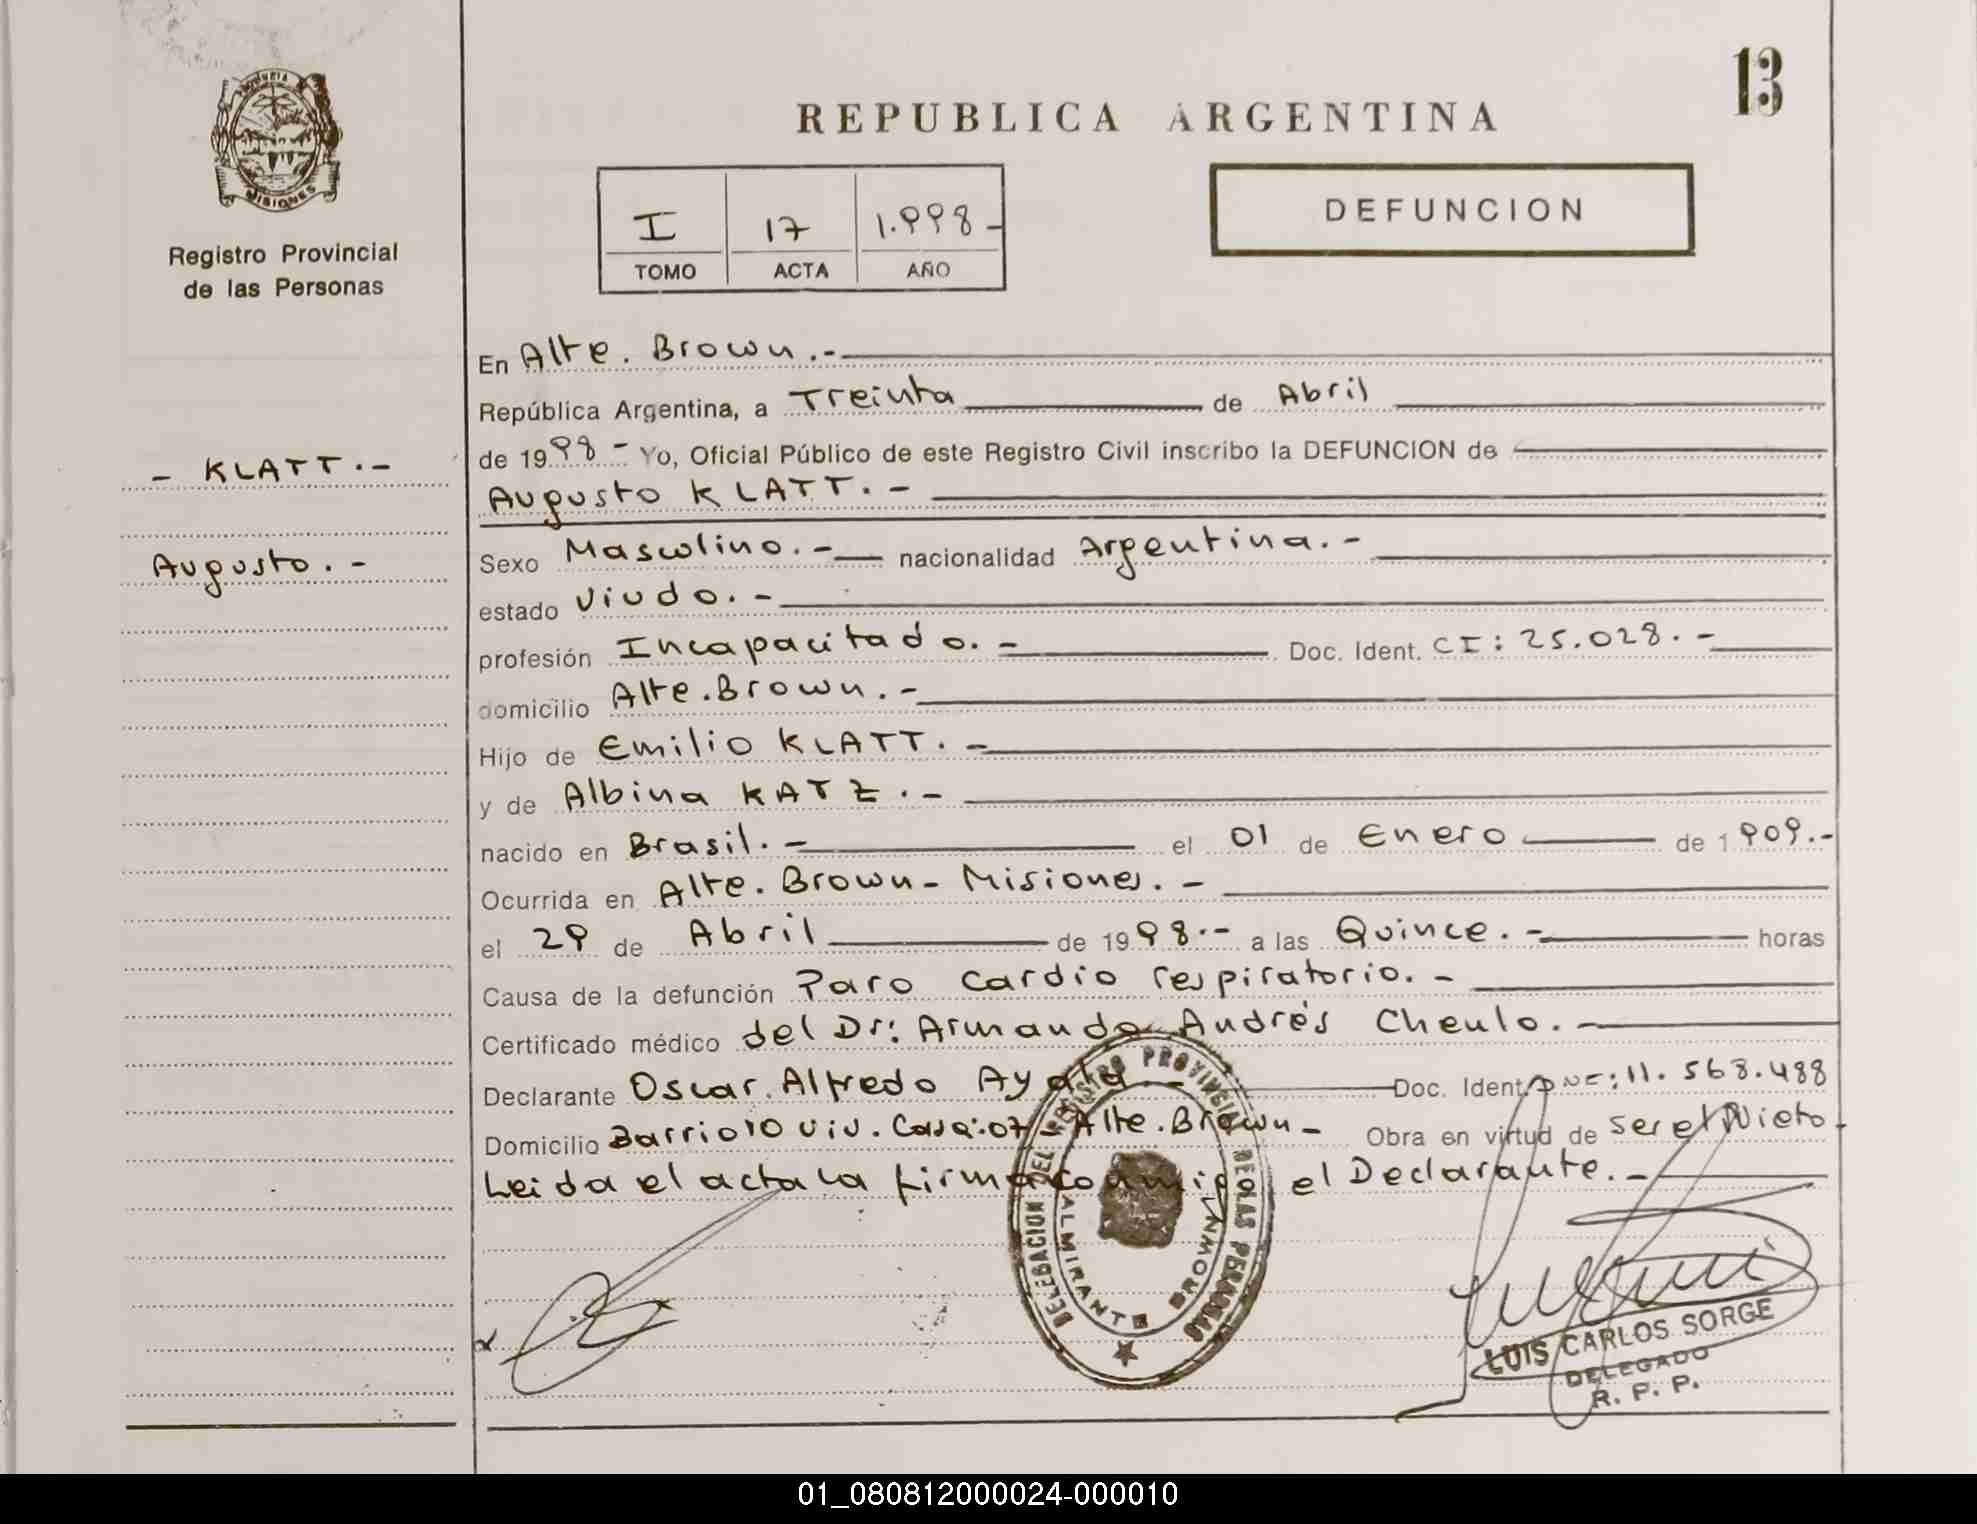 13
PROVINCIA DE
MISIONES
Registro Provincial
de las Personas
REPUBLICA ARGENTINA
I 17 1.998-
TOMO ACTA AÑO
DEFUNCION
- KLATT.-
Augusto.-
En Alte. Brown.-
República Argentina, a Treinta de Abril
de 1998- Yo, Oficial Público de este Registro Civil inscribo la DEFUNCION de
Augusto KLATT.-
Sexo Masculino.- nacionalidad Argentina.-
estado Viudo.-
profesión Incapacitado.- Doc. Ident. CI: 25.028.-
domicilio Alte. Brown.-
Hijo de Emilio KLATT.-
y de Albina KATZ.-
nacido en Brasil.- el 01 de Enero de 1909.-
Ocurrida en Alte. Brown- Misiones.-
el 29 de Abril de 1998.- a las Quince.- horas
Causa de la defunción Paro Cardio respiratorio.-
Certificado médico del Dr: Armando Andrés Cheulo.-
Declarante Oscar Alfredo Ayala- Doc. Ident. DNI: 11.568.488
Domicilio Barrio 10 viv. Casa: 07- Alte. Brown- Obra en virtud de ser el Nieto.
Leida el acta la firma conmigo el Declarante.-
DELEGACION DEL REGISTRO PROVINCIAL DE LAS PERSONAS
ALMIRANTE BROWN
LUIS CARLOS SORGE
DELEGADO
R. P. P.
01_080812000024-000010